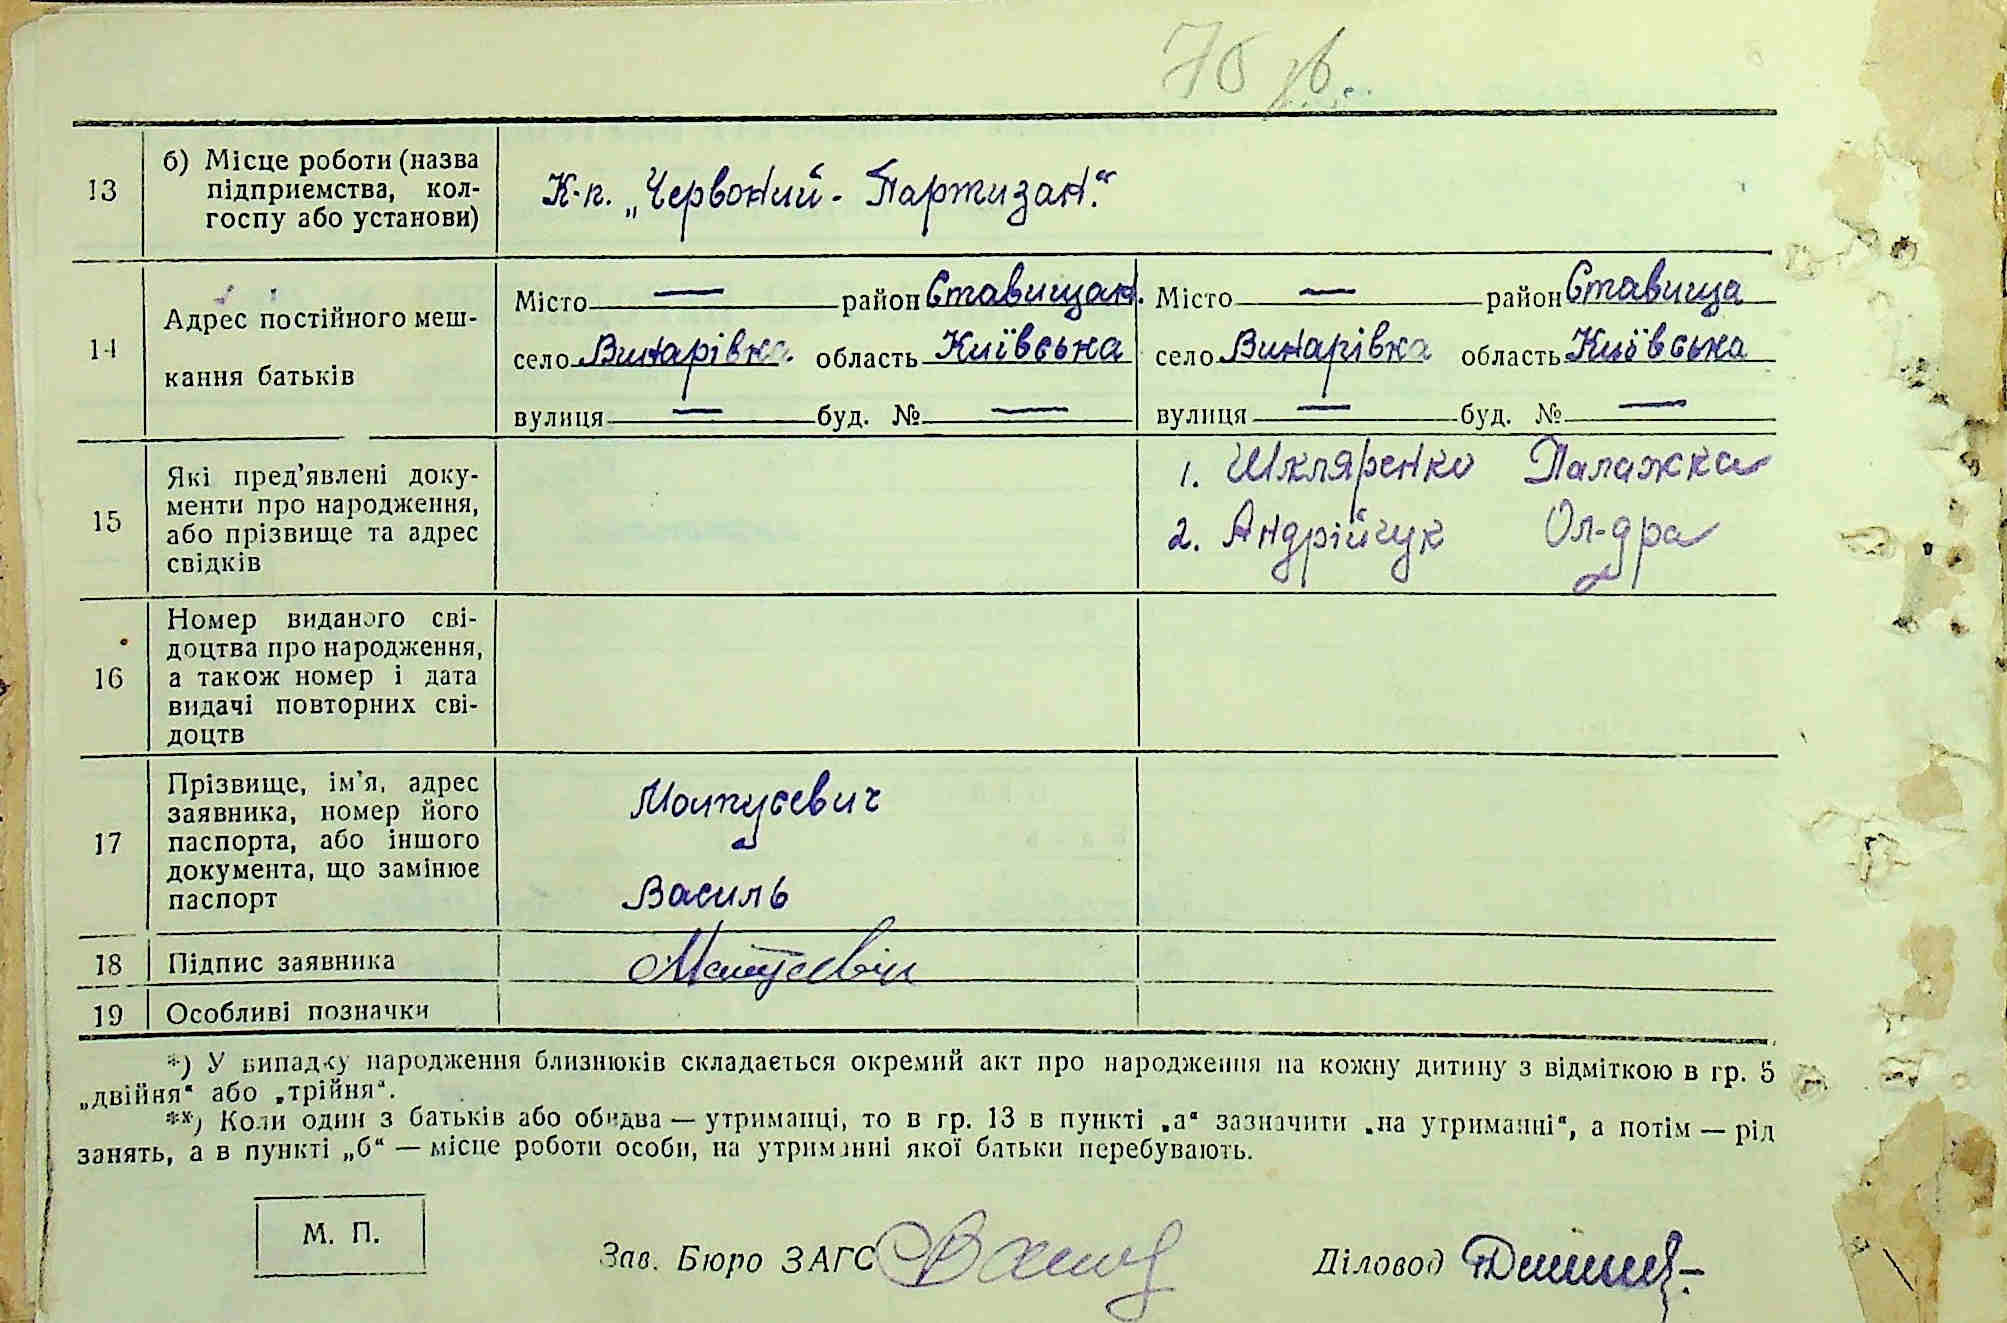 76 зв
13
б) Місце роботи (назва
підприємства, кол-
госпу або установи)
К-п. „Червоний - Партизан."
14
Адрес постійного меш-
кання батьків
Місто — район Ставищан.
село Винарівка область Київська
вулиця — буд. № —
Місто — район Ставища
село Винарівка область Київська
вулиця — буд. № —
15
Які пред’явлені доку-
менти про народження,
або прізвище та адрес
свідків
1. Шкляренко Палажка
2. Андрійчук Ол-дра
16
Номер виданого сві-
доцтва про народження,
а також номер і дата
видачі повторних сві-
доцтв
17
Прізвище, ім’я, адрес
заявника, номер його
паспорта, або іншого
документа, що замінює
паспорт
Матусевич
Василь
18
Підпис заявника
Матусевич
19
Особливі позначки
*) У випадку народження близнюків складається окремий акт про народження на кожну дитину з відміткою в гр. 5
„двійня“ або „трійня“.
**) Коли один з батьків або обидва — утриманці, то в гр. 13 в пункті „а“ зазначити „на утриманні“, а потім — рід
занять, а в пункті „б“ — місце роботи особи, на утриманні якої батьки перебувають.
М. П.
Зав. Бюро ЗАГС
Діловод